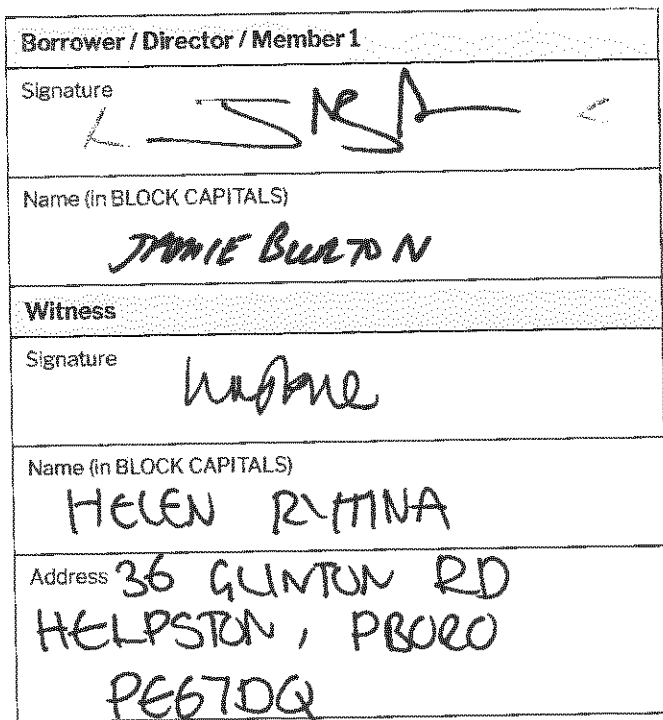 Borrower / Director / Member 1
Signature
Name (in BLOCK CAPITALS)
JAMIE BURTON
Witness
Signature
Name (in BLOCK CAPITALS)
HELEN
Address 36 GLINTON RD
HELPSTON, PBORO
PE67DQ